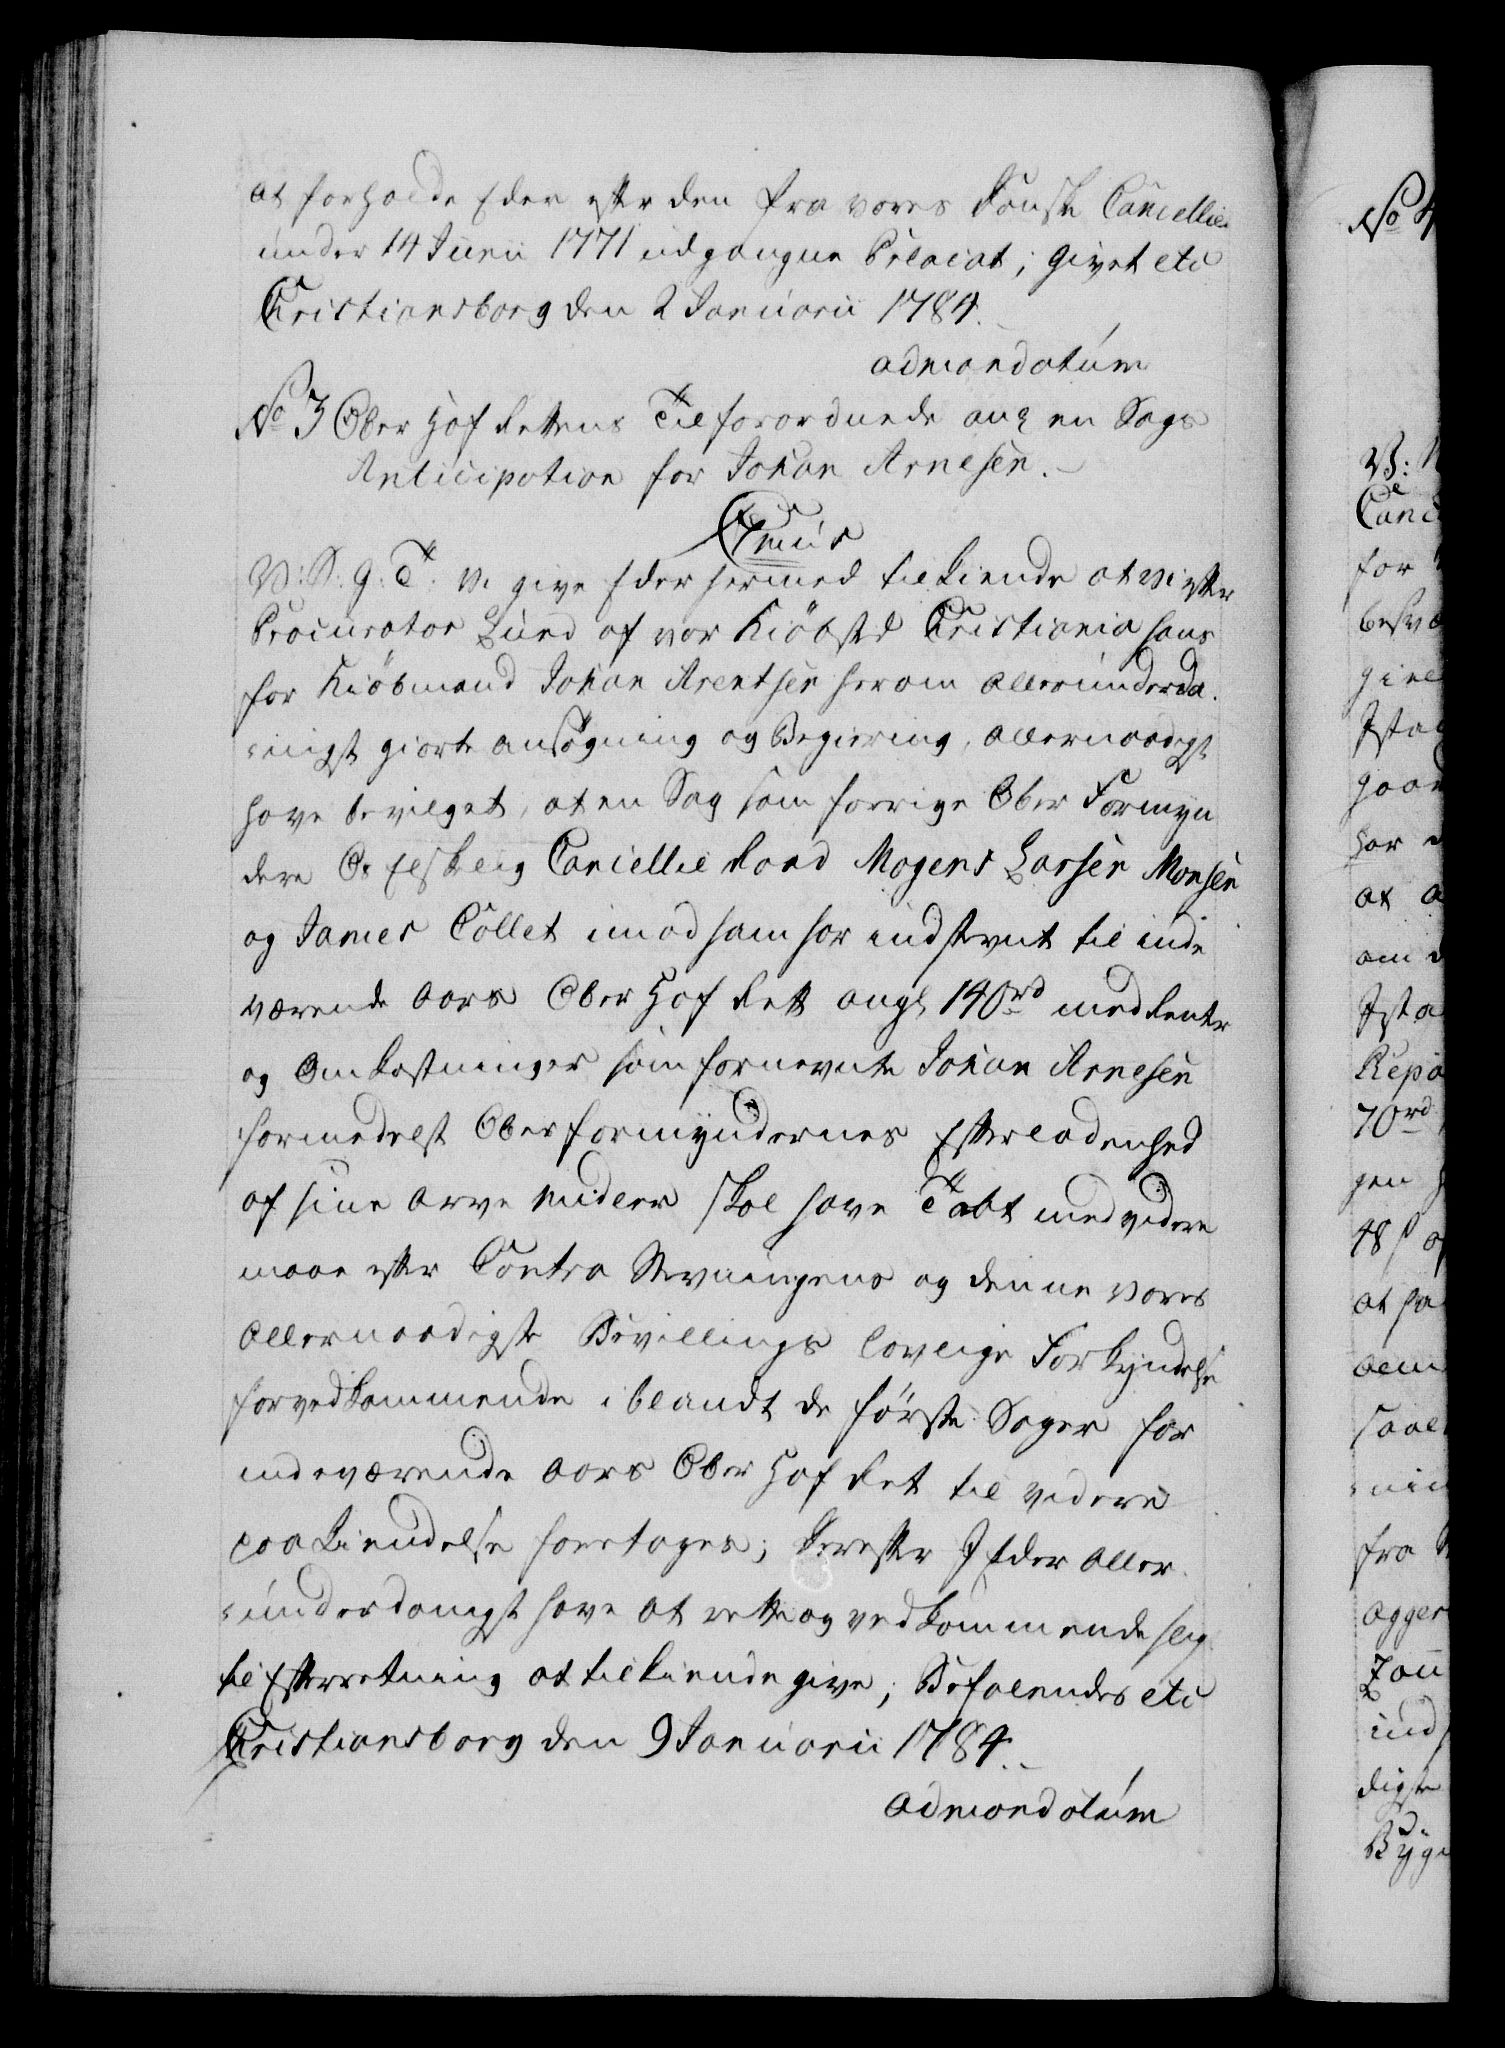 at forholde Eder efter den fra vores Danske Cancellie
under 14 Junii 1771 udgangne Placat; Givet etc
Christiansborg den 2 Januarii 1784.
admandatum
No 3 Ober Hof Rettens Tilforordnede ang en Sags
Anticipation for Johan Arnesen.
CRmus
V: S: G: T: Vi give Eder hermed tilkiende at vi efter
Procurator Lund af vor Kiöbsted Christiania hans
for Kiöbmand Johan Arentsen herom allerunderda-
-nigst giorte ansøgning og Begiering, allernaadigst
have bevilget, at en Sag som forrige Ober Formyn
dere Os Elskelig Cancellie Raad Mogens Larsen Monsen
og James Collet imod ham har indstevnt til inde
værende Aars Ober Hof Rett angl 140rd med Renter
og Omkostninger som fornevnte Johan Arnesen
formedelst Oberformyndernes Efterladenhed
af sine Arve Midler skal have Tabt med videre
maae efter Contra Stevningens og denne vores
allernaadigste Bevillings lovlige Forkyndelse
for vedkommende iblandt de förste Sager for
indeværende Aars Ober Hof Ret til videre
paakiendelse foretages; Derefter I Eder aller-
-underdanigst have at rette og vedkommende slig
til Efterretning at tilkiende give; Befalendes etc
Christiansborg den 9 Januarii 1784.
admandatum
No 4
V:
for
at
om
70rd
48 ß
at
fra
ind
digste